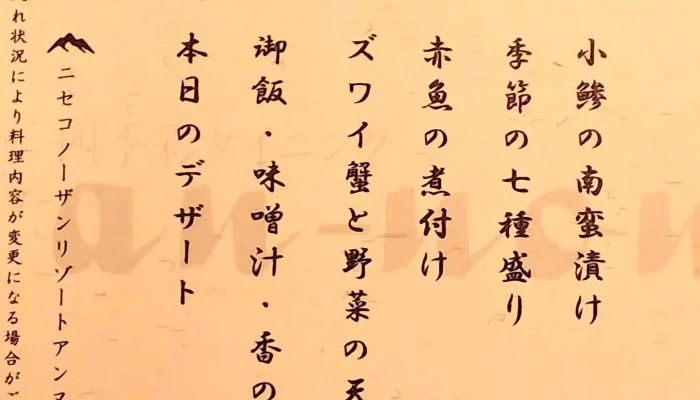 小鯵の南蛮漬け
季節の七種盛り
赤魚の煮付け
ズワイ蟹と野菜の天
御飯・味噌汁・香の
本日のデザート
ニセコノーザンリゾートアンヌ
れ状況により料理内容が変更になる場合がご
an-non